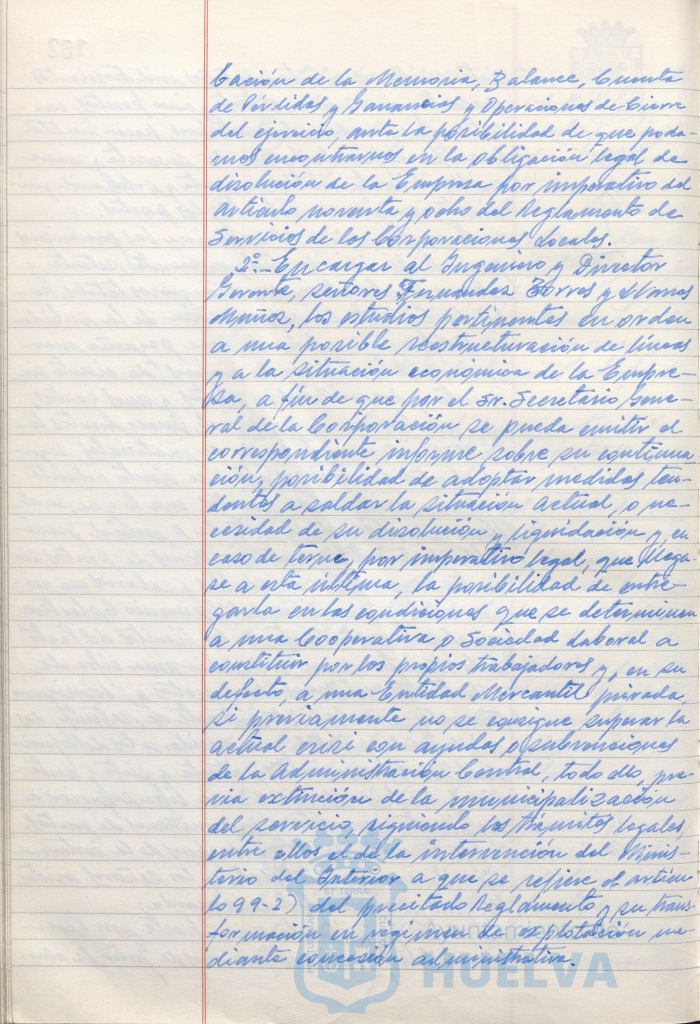 bación de la Memoria, Balance, Cuenta
de Pérdidas y Ganancias y Operaciones de Cierre
del ejercicio, ante la posibilidad de que poda-
mos encontrarnos en la obligación legal de
disolución de la Empresa por imperativo del
artículo noventa y ocho del Reglamento de
Servicios de las Corporaciones Locales.
2º.- Encargar al Ingeniero y Director
Gerente, señores Fernandez Torres y Llanes
Muñoz, los estudios pertinentes en orden
a una posible reestructuración de líneas
y a la situación económica de la Empre-
sa, a fin de que por el Sr. Secretario Gene-
ral de la Corporación se pueda emitir el
correspondiente informe sobre su continua
ción, posibilidad de adoptar medidas ten-
dentes a saldar la situación actual, o ne-
cesidad de su disolución y liquidación y, en
caso de  , por imperativo legal, que llega-
se a esta última, la posibilidad de entre-
garla en las condiciones que se determinen
a una Cooperativa o Sociedad Laboral a
constituir por los propios trabajadores y, en su
defecto, a una Entidad Mercantil privada,
si previamente no se consigue superar la
actual crisi con ayudas o subvenciones
de la Administración Central, todo ello, pre-
via extinción de la municipalización
del servicio, siguiendo los trámites legales,
entre ellos el de la intervención del Minis-
terio del Interior a que se refiere el artícu-
lo 99-2) del precitado Reglamento y su trans-
formación en regimen de explotación me-
diante concesión administrativa.
Ayuntamiento de
HUELVA